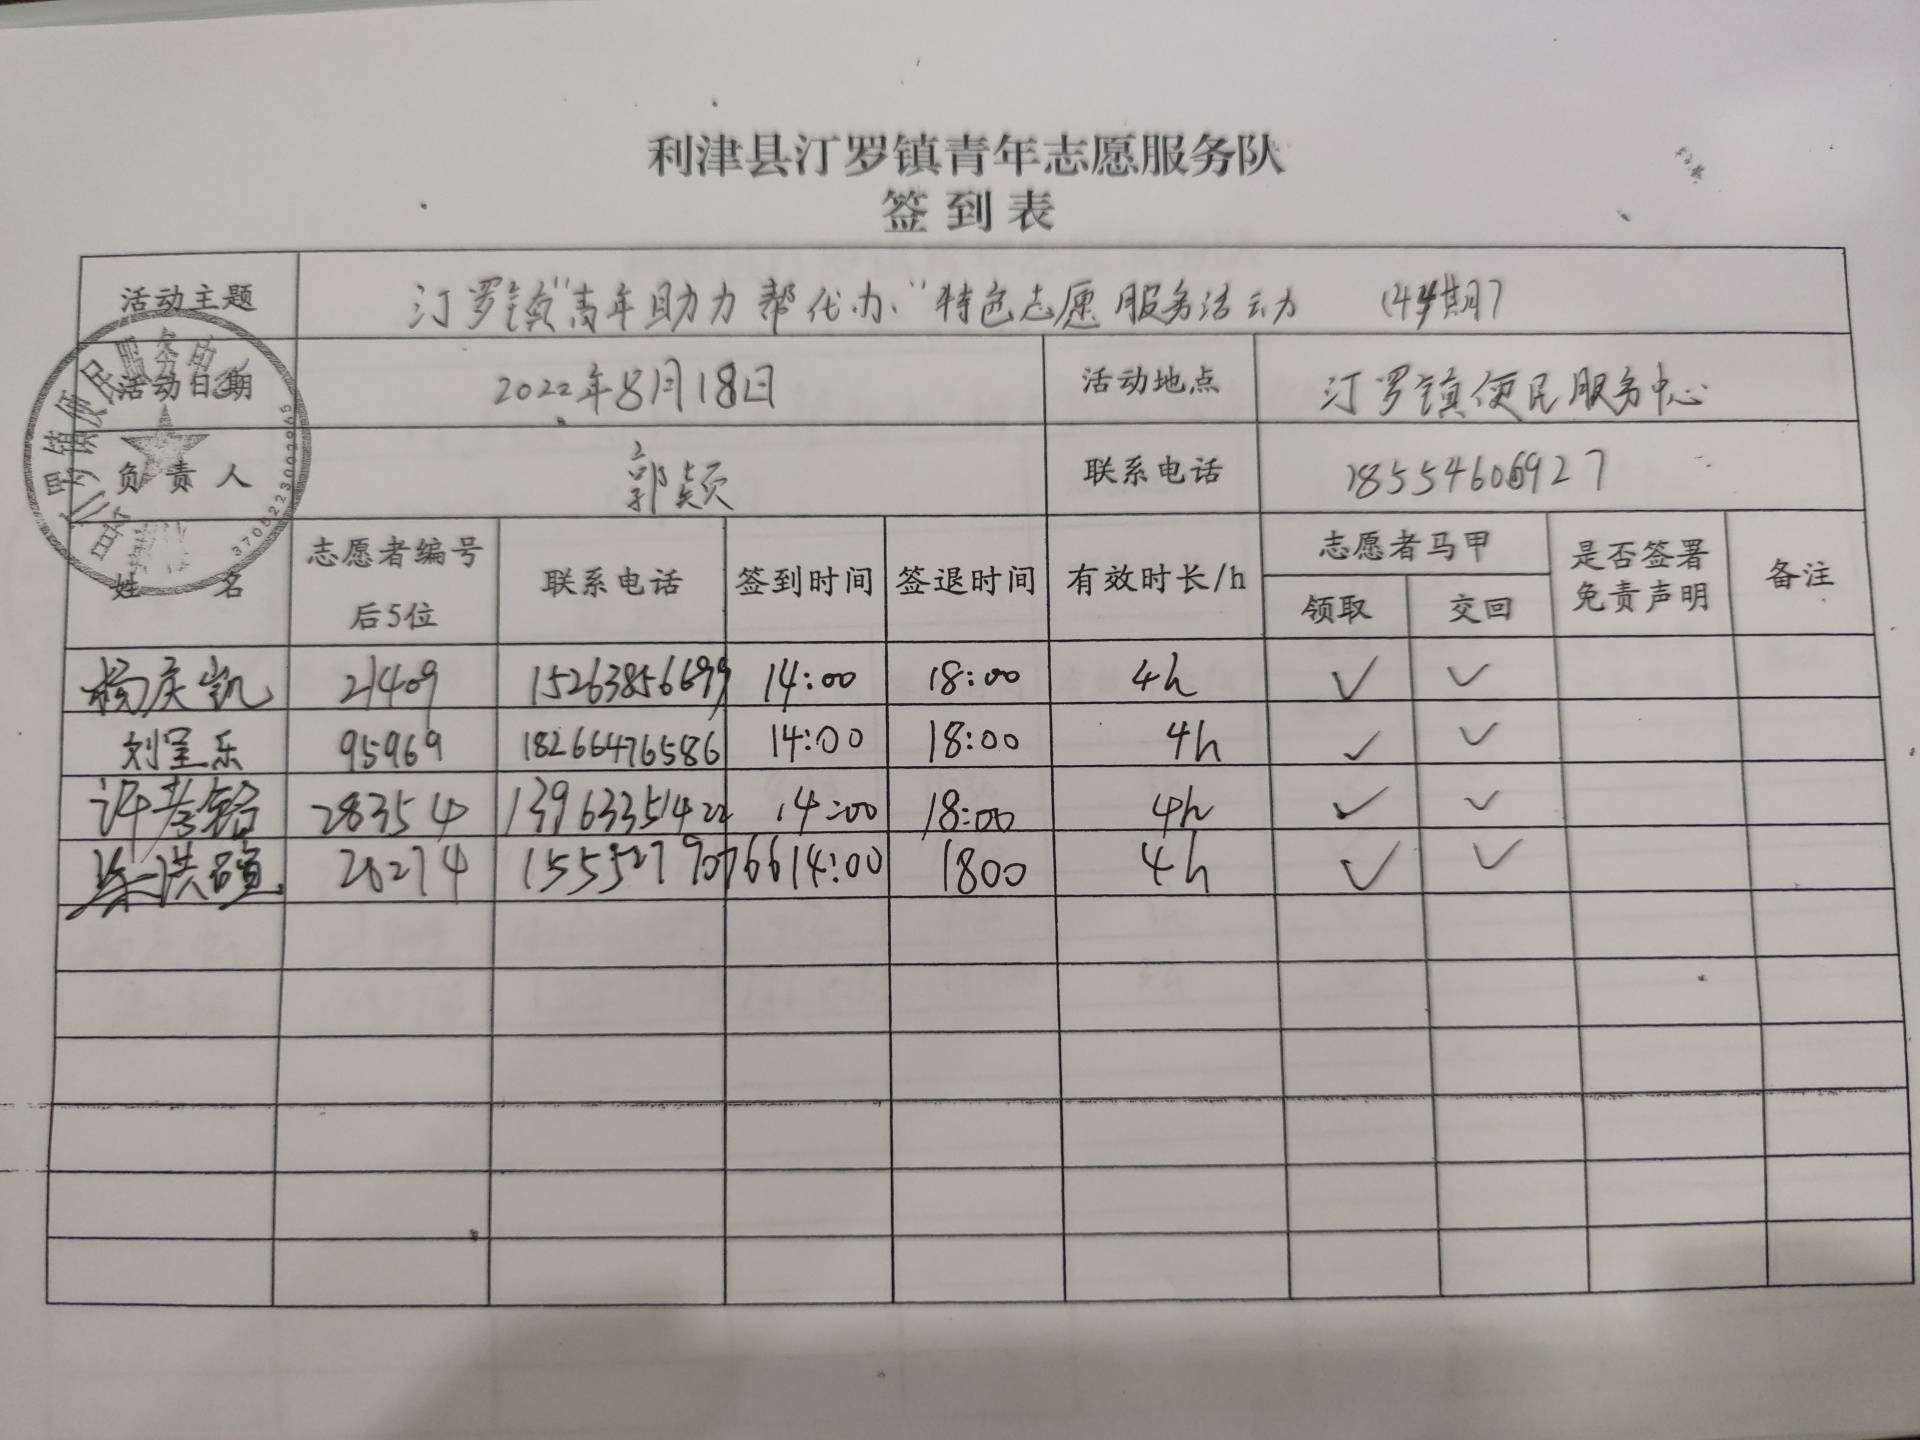 利津县汀罗镇青年志愿服务队
签到表
活动主题 汀罗镇"青年助力 帮代办"特色志愿服务活动 (44期)
活动日期 2022年8月18日 活动地点 汀罗镇便民服务中心
负责人 郭颖 联系电话 18554606927
姓名 志愿者编号后5位 联系电话 签到时间 签退时间 有效时长/h 志愿者马甲 领取 交回 是否签署免责声明 备注
杨庆凯 21409 15263856699 14:00 18:00 4h ✓ ✓
刘呈乐 95969 18266476586 14:00 18:00 4h ✓ ✓
许孝铭 28354 13963351422 14:00 18:00 4h ✓ ✓
洪硕 26274 15552790766 14:00 1800 4h ✓ ✓
3705223002965